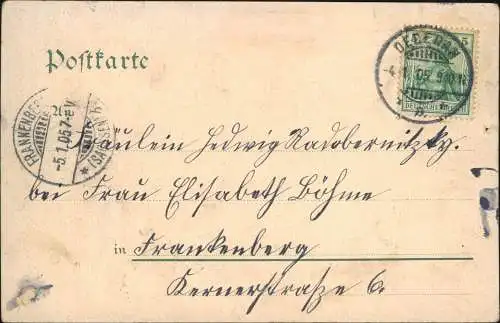 Postkarte
OEDERAN
5
DEUTSCHES REICH
FRANKENBERG
-5.1.05.7-8V.
*(SACHSEN)*
Fräulein Hedwig Radobernitzky.
bei Frau Elisabeth Böhme
in Frankenberg
Kernerstraße 6.